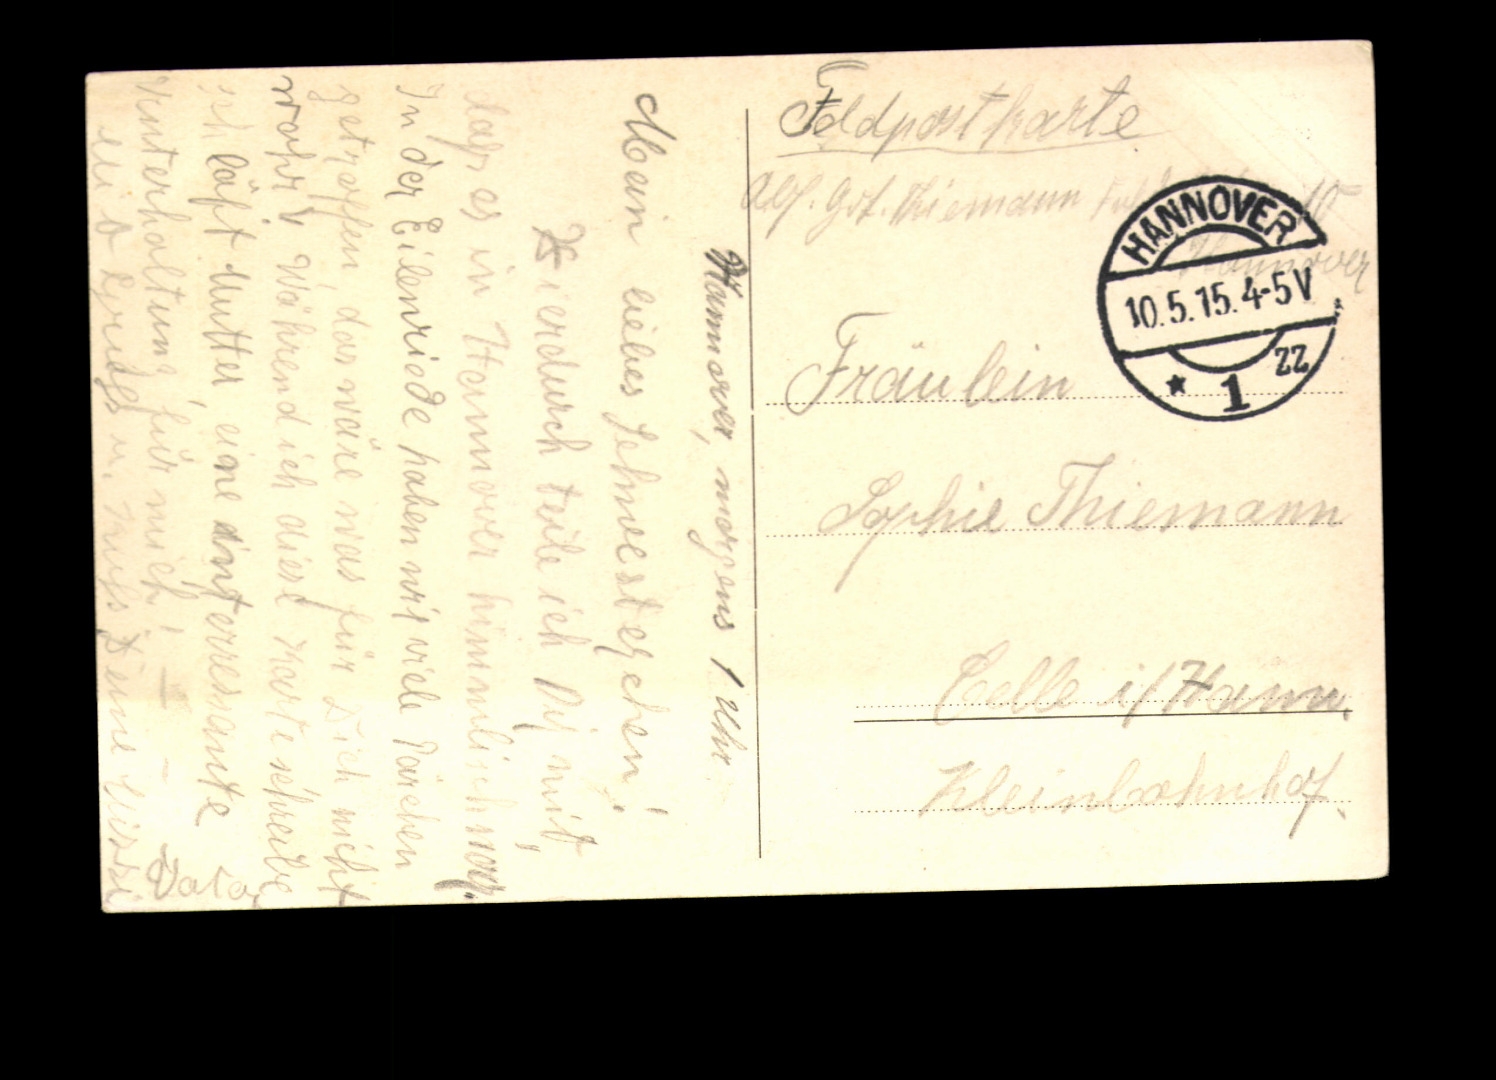 Feldpostkarte
Abs. Gft. Thiemann
Hannover
HANNOVER
10.5.15.4-5V
* 1 ZZ
Fräulein
Sophie Thiemann
Celle i/Hann.
Kleinbahnhof.
Hannover, morgens 1 Uhr
Mein liebes Schwesterchen!
Hierdurch teile ich Dir mit,
dass es in Hannover himmlisch war.
In der Eilenriede haben wir viele Pärchen
getroffen, das wäre was für Dich nicht
wahr? Während ich diese Karte schreibe
schläft Mutter, eine interressante
Unterhaltung für mich!
Vata
Grüßt u. Kuss Deine Lissi